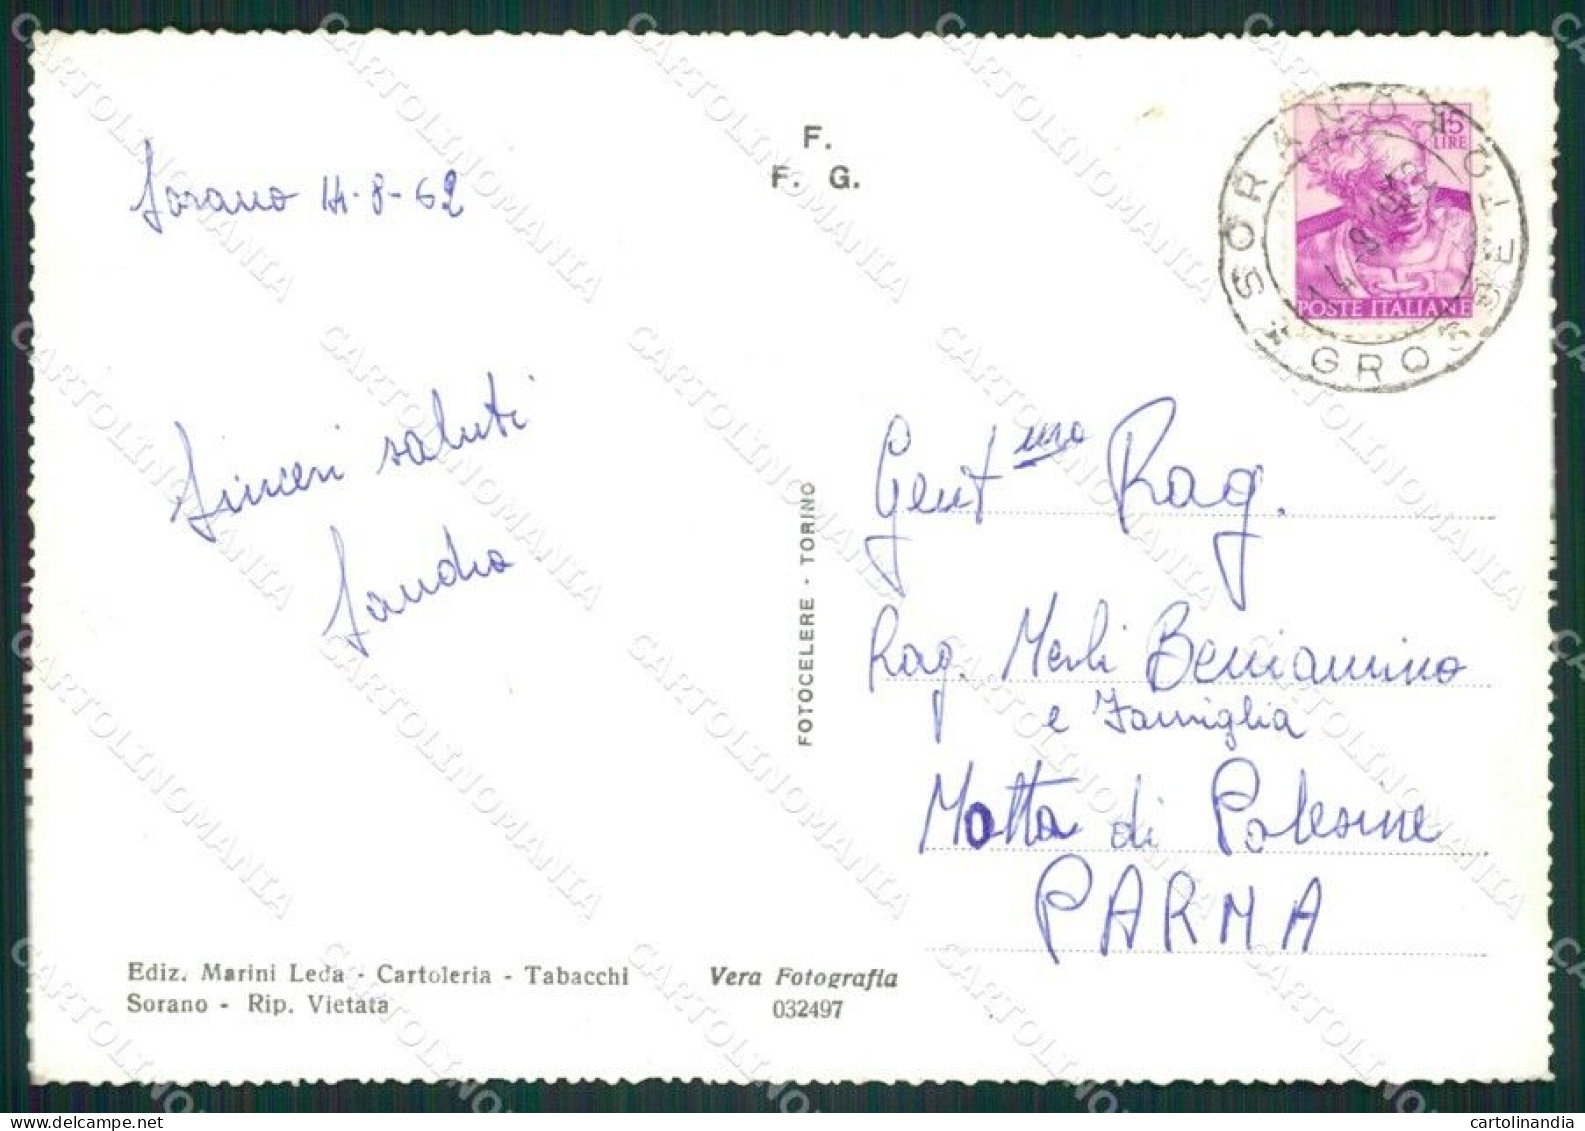 F.
F. G.
Sorano 14-8-62
15
LIRE
POSTE ITALIANE
SORANO
GROSSETO
Sinceri saluti
Sandra
Gent.mo Rag.
Rag. Merli Beniamino
e Famiglia
Motta di Polesine
PARMA
FOTOCELERE - TORINO
Ediz. Marini Leda - Cartoleria - Tabacchi
Sorano - Rip. Vietata
Vera Fotografia
032497
CARTOLINOMANIA
cartolinandia